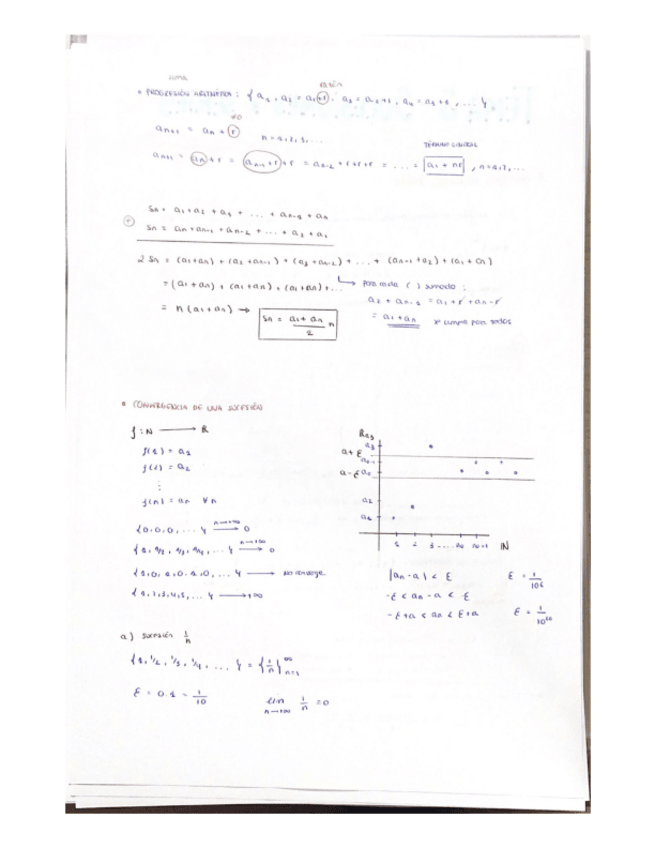 suma
razón
• PROGRESIÓN ARITMÉTICA: { a₁, a₂ = a₁+r, a₃ = a₂+r, a₄ = a₃+r, ... }
≠0
aₙ₊₁ = aₙ + r   n = 1, 2, 3, ...
TÉRMINO GENERAL
aₙ₊₁ = aₙ + r = aₙ₋₁ + r + r = aₙ₋₂ + r + r + r = ... = a₁ + nr , n = 1, 2, ...
Sₙ = a₁ + a₂ + a₃ + ... + aₙ₋₁ + aₙ
+
Sₙ = aₙ + aₙ₋₁ + aₙ₋₂ + ... + a₂ + a₁
2 Sₙ = (a₁+aₙ) + (a₂+aₙ₋₁) + (a₃+aₙ₋₂) + ... + (aₙ₋₁+a₂) + (a₁+aₙ)
= (a₁+aₙ) + (a₁+aₙ) + (a₁+aₙ) + ...
para cada ( ) sumado :
a₂ + aₙ₋₁ = a₁ + r + aₙ - r
= n (a₁+aₙ) → Sₙ = (a₁ + aₙ)/2 n
= a₁ + aₙ   se cumple para todos
• CONVERGENCIA DE UNA SUCESIÓN
f : N → R
f(1) = a₁
f(2) = a₂
⋮
f(n) = aₙ ∀n
{0, 0, 0, ... } n→+∞ → 0
{1, 1/2, 1/3, 1/4, ... } n→+∞ → 0
{1, 0, 1, 0, 1, 0, ... } → No converge
{1, 2, 3, 4, 5, ... } → +∞
R
a₃
a+ε
a-ε
a₂
a₁
1 2 3 ... n₀ n₀+1 N
|aₙ - a| < ε
ε = 1/10⁶
-ε < aₙ - a < ε
-ε + a < aₙ < ε + a
a) sucesión 1/n
{1, 1/2, 1/3, 1/4, ... } = {1/n}∞ n=1
ε = 0.1 = 1/10
lim n→+∞ 1/n = 0